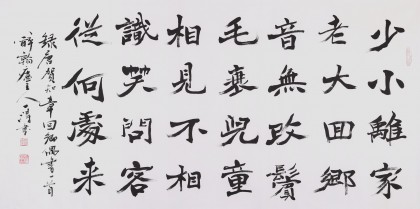 少小離家
老大回鄉
音無改鬢
毛衰兒童
相見不相
識笑問客
從何處来
錄唐賀知章回鄉偶書一首